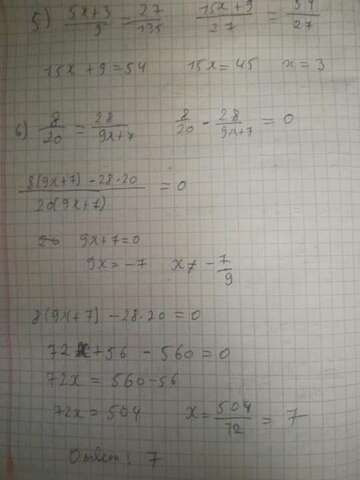 5) (5x+3)/9 = 27/135 (15x+9)/27 = 54/27
15x + 9 = 54 15x = 45 x = 3
6) 8/20 = 28/(9x+7) 8/20 - 28/(9x+7) = 0
(8(9x+7) - 28·20)/(20(9x+7)) = 0
9x+7=0
9x = -7 x ≠ -7/9
8(9x+7) - 28·20 = 0
72x + 56 - 560 = 0
72x = 560-56
72x = 504 x = 504/72 = 7
Ответ: 7